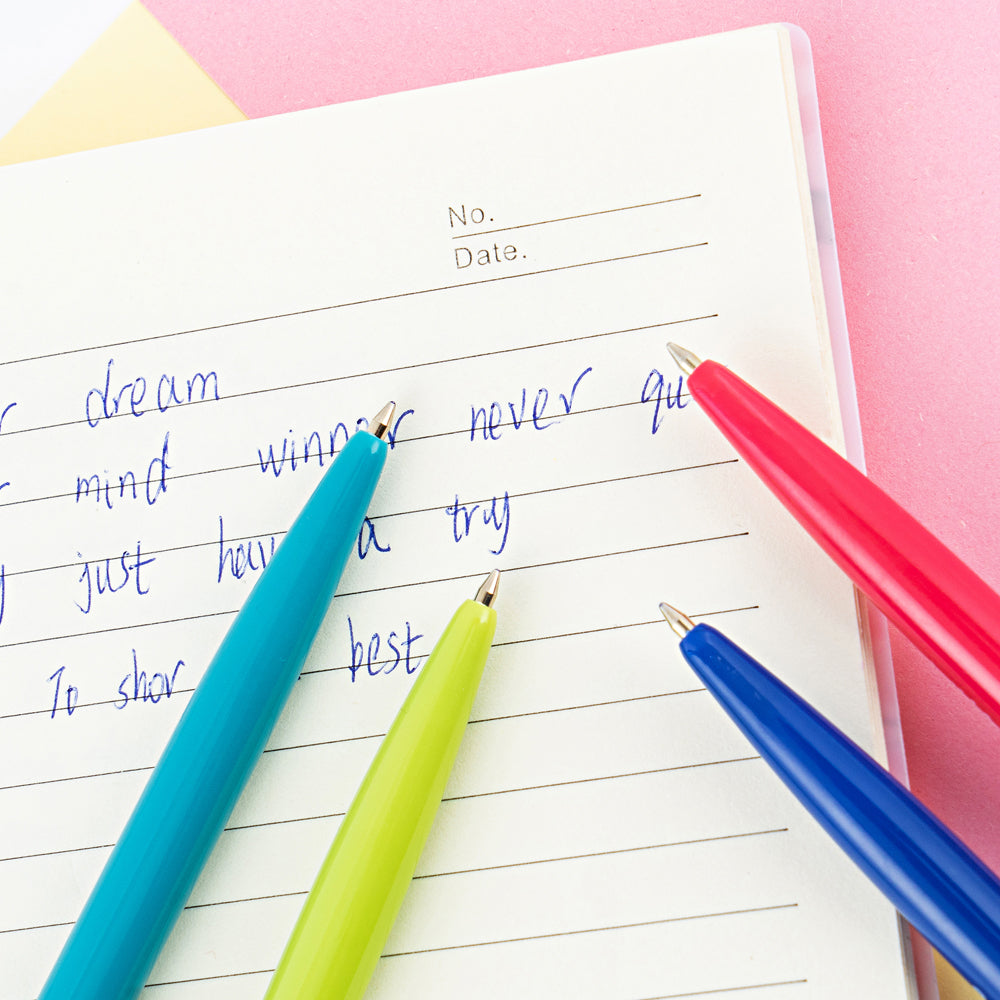 No.
Date.
dream
mind winner never qu
just hav a try
To show best